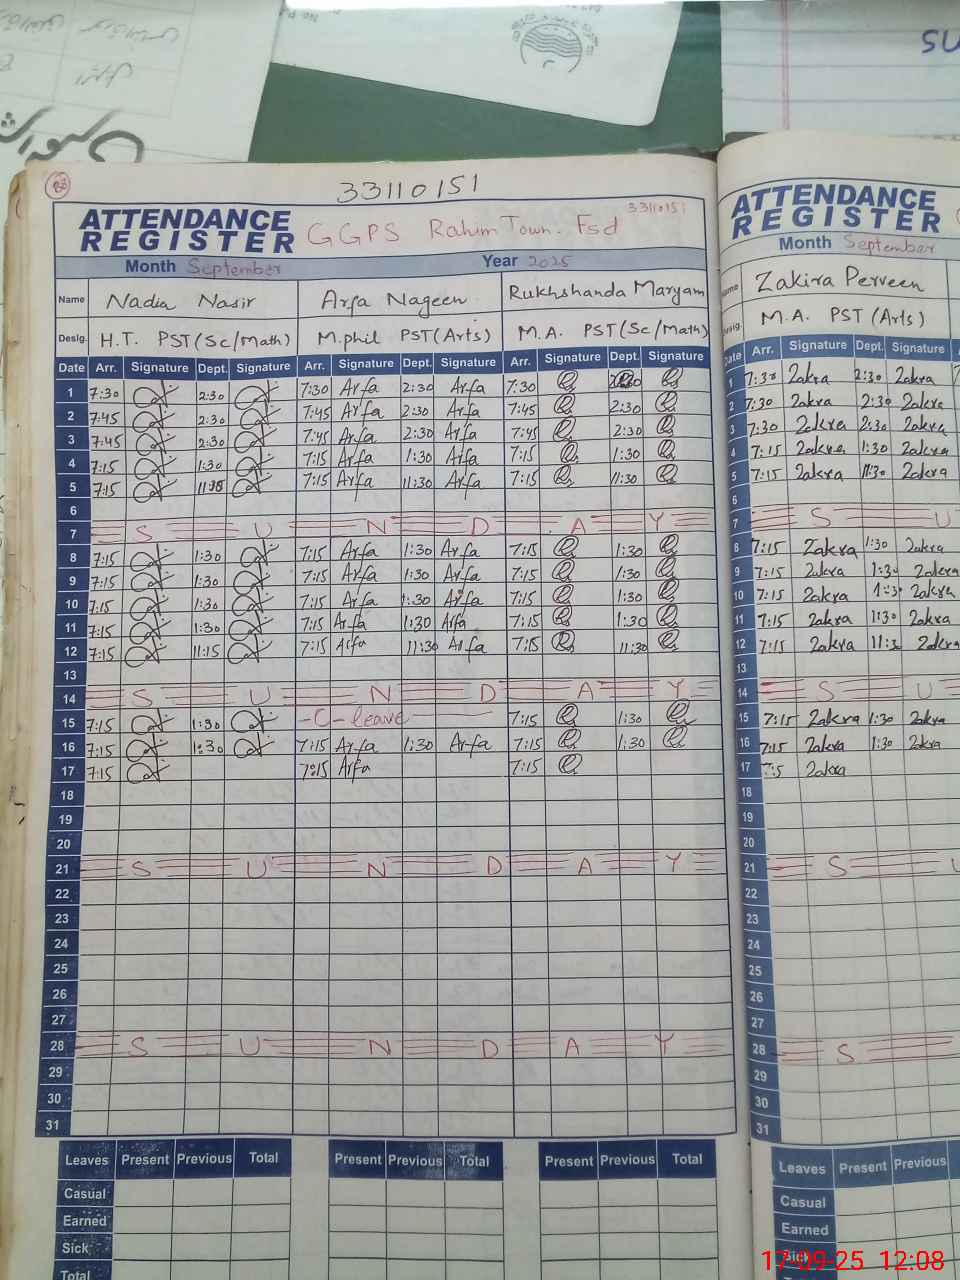 33110151
ATTENDANCE REGISTER GGPS Rahim Town. Fsd 33110151
Month September Year 2025
Name Nadia Nasir Arfa Nageen Rukhshanda Maryam
Desig. H.T. PST (Sc/Math) M.phil PST (Arts) M.A. PST (Sc/Math)
Date Arr. Signature Dept. Signature Arr. Signature Dept. Signature Arr. Signature Dept. Signature
1 7:30 2:30 7:30 Arfa 2:30 Arfa 7:30
2 7:45 2:30 7:45 Arfa 2:30 Arfa 7:45 2:30
3 7:45 2:30 7:45 Arfa 2:30 Arfa 7:45 2:30
4 7:15 1:30 7:15 Arfa 1:30 Arfa 7:15 1:30
5 7:15 7:15 Arfa 11:30 Arfa 7:15 11:30
6
7 S U N D A Y
8 7:15 1:30 7:15 Arfa 1:30 Arfa 7:15 1:30
9 7:15 1:30 7:15 Arfa 1:30 Arfa 7:15 1:30
10 7:15 1:30 7:15 Arfa 1:30 Arfa 7:15 1:30
11 7:15 1:30 7:15 Arfa 1:30 Arfa 7:15 1:30
12 7:15 11:15 7:15 Arfa 11:30 Arfa 7:15 11:30
13
14 S U N D A Y
15 7:15 1:30 -C- leave 7:15 1:30
16 7:15 1:30 7:15 Arfa 1:30 Arfa 7:15 1:30
17 7:15 7:15 Arfa 7:15
18
19
20
21 S U N D A Y
22
23
24
25
26
27
28 S U N D A Y
29
30
31
Leaves Present Previous Total Present Previous Total Present Previous Total
Casual
Earned
Sick
Total
ATTENDANCE REGISTER
Month September
Name Zakira Perveen
Desig. M.A. PST (Arts)
Date Arr. Signature Dept. Signature
1 7:30 Zakra 2:30 Zakra
2 7:30 Zakra 2:30 Zakra
3 7:30 Zakra 2:30 Zakra
4 7:15 Zakra 1:30 Zakra
5 7:15 Zakra 11:30 Zakra
6
7 S U
8 7:15 Zakra 1:30 Zakra
9 7:15 Zakra 1:30 Zakra
10 7:15 Zakra 1:30 Zakra
11 7:15 Zakra 1:30 Zakra
12 7:15 Zakra 11:3 Zakra
13
14 S U
15 7:15 Zakra 1:30 Zakra
16 7:15 Zakra 1:30 Zakra
17 Zakra
18
19
20
21 S U
22
23
24
25
26
27
28 S
29
30
31
Leaves Present Previous
Casual
Earned
Sick
17-09-25 12:08